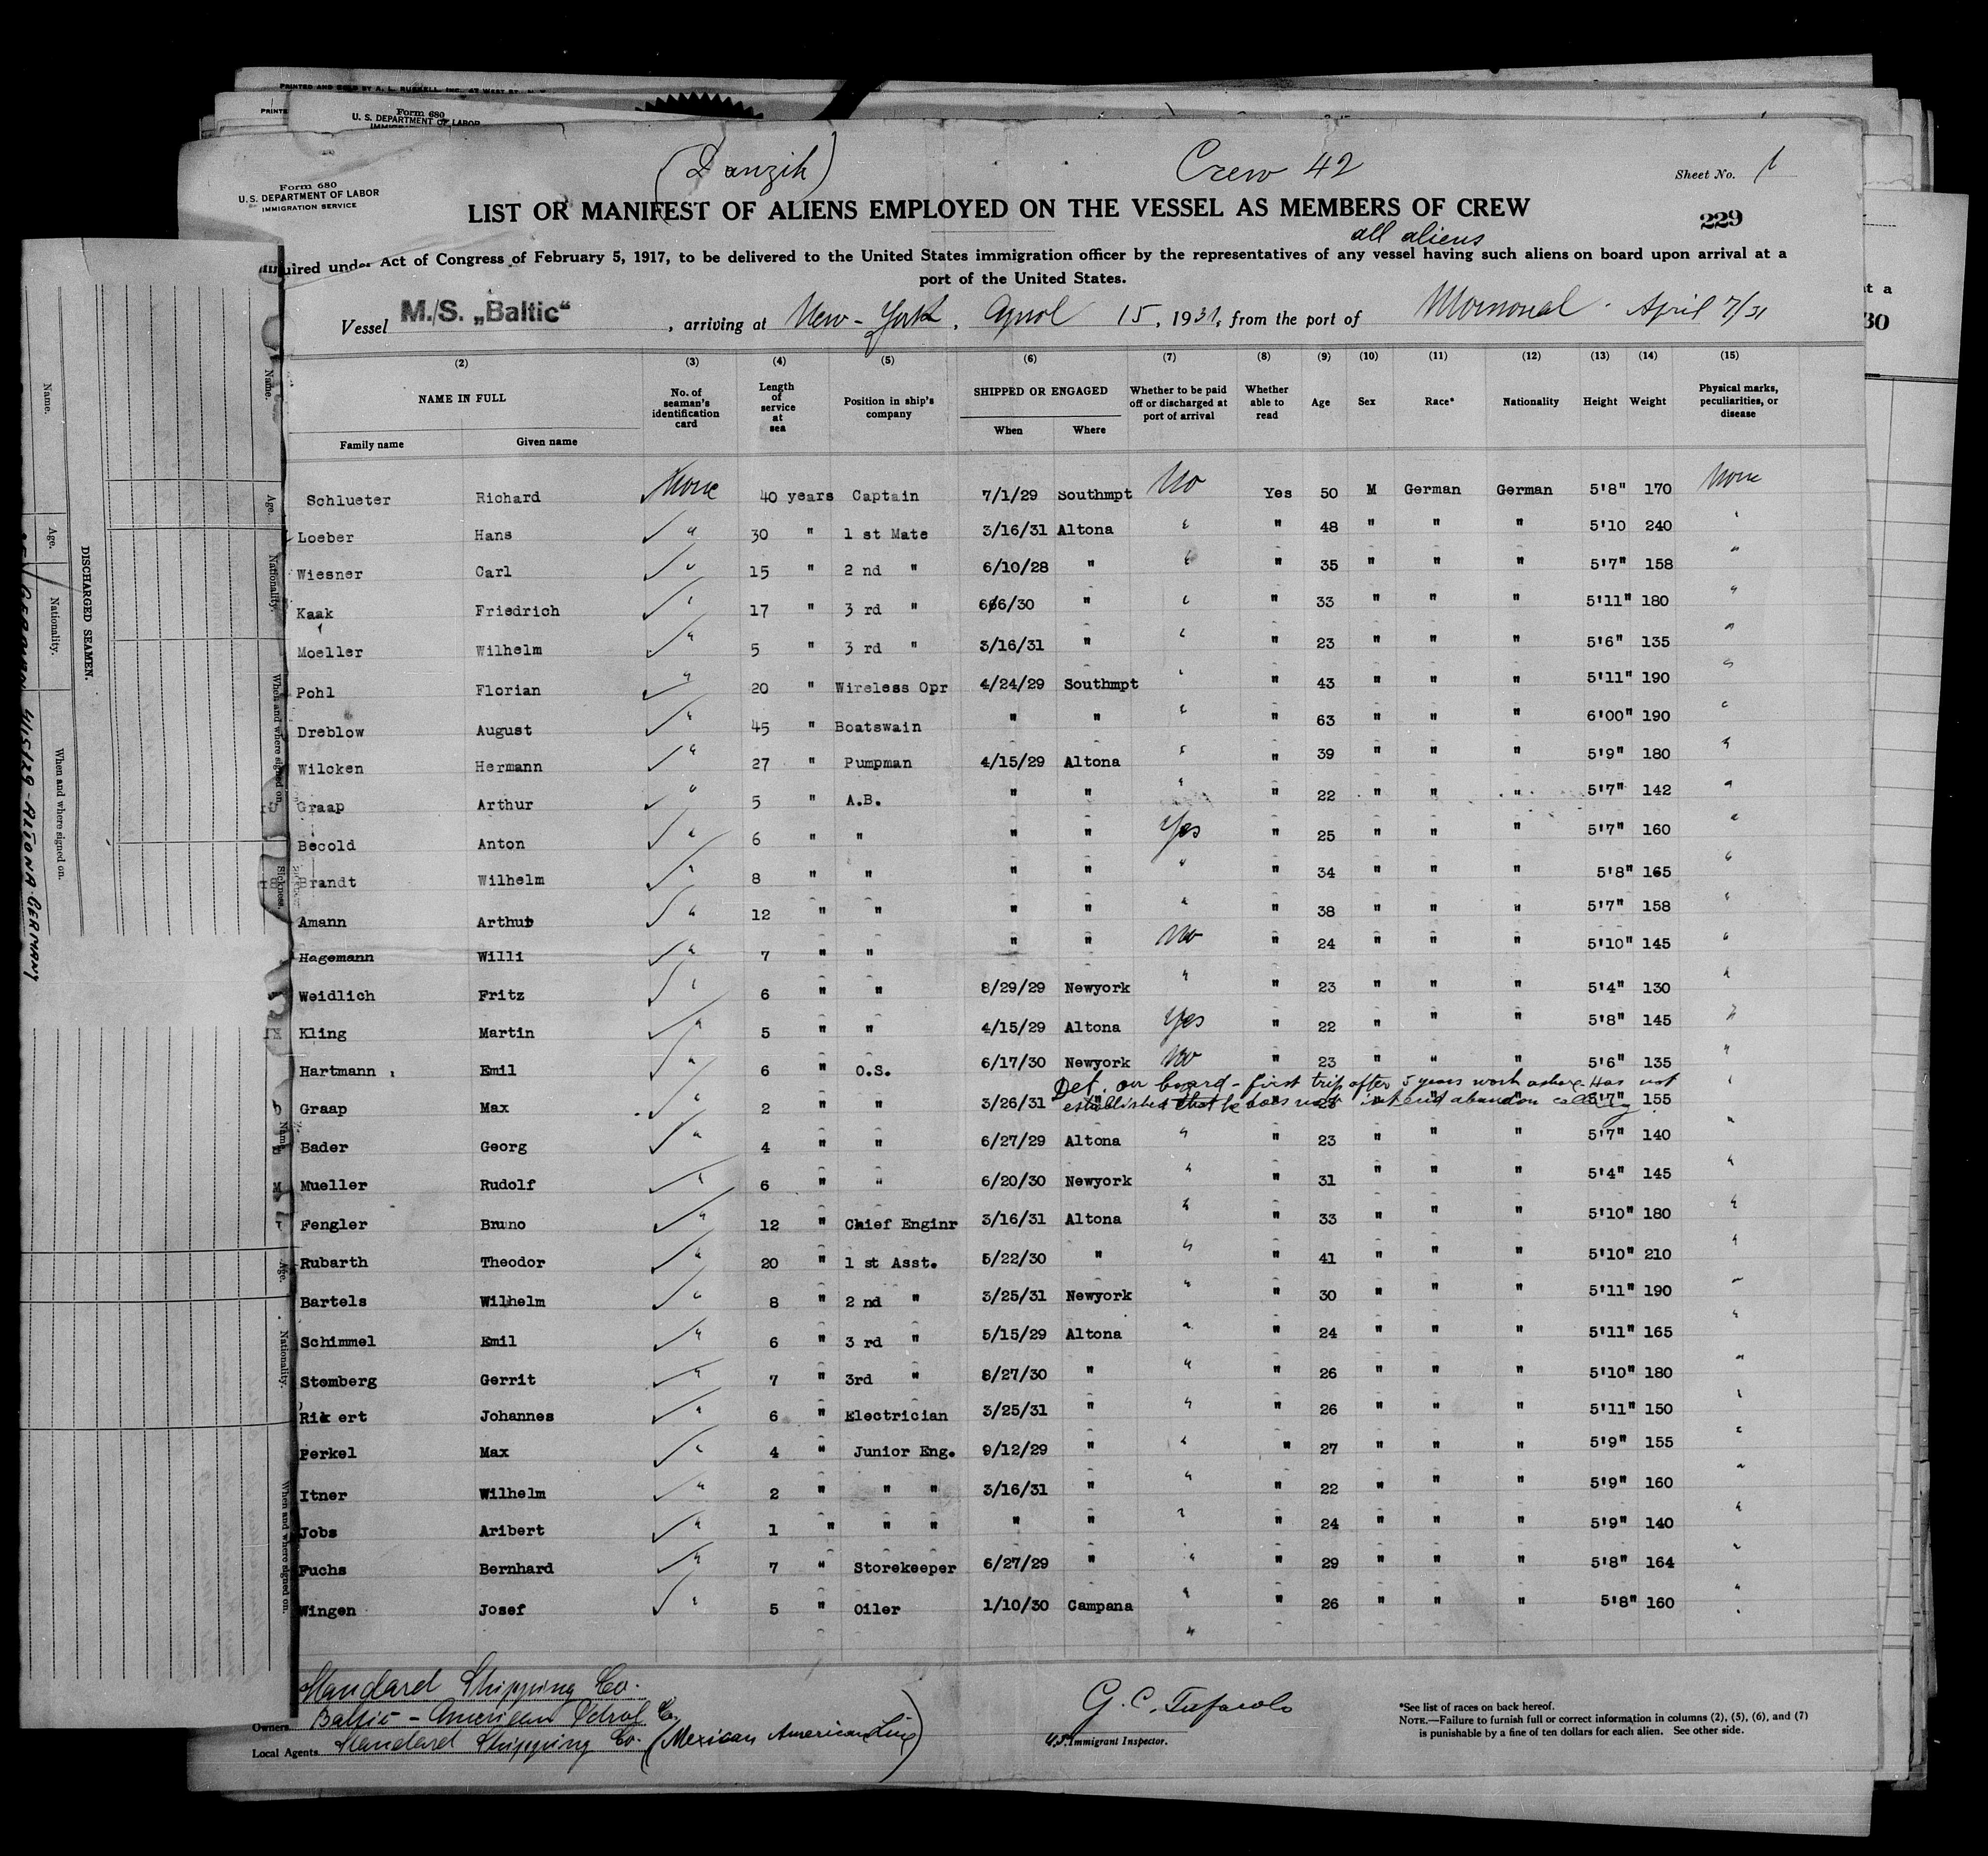 PRINTED AND SOLD BY A. L. RUSSELL, INC. 47 WEST ST.
Form 680
U. S. DEPARTMENT OF LABOR
(Danzih) Crew 42
Form 680
U.S. DEPARTMENT OF LABOR
IMMIGRATION SERVICE
Sheet No. 1
LIST OR MANIFEST OF ALIENS EMPLOYED ON THE VESSEL AS MEMBERS OF CREW
229
all aliens
quired under Act of Congress of February 5, 1917, to be delivered to the United States immigration officer by the representatives of any vessel having such aliens on board upon arrival at a
port of the United States.
Vessel M./S. „Baltic“, arriving at New-York, April 15, 1931, from the port of April 7/31
(2) (3) (4) (5) (6) (7) (8) (9) (10) (11) (12) (13) (14) (15)
NAME IN FULL No. of seaman's identification card Length of service at sea Position in ship's company SHIPPED OR ENGAGED Whether to be paid off or discharged at port of arrival Whether able to read Age Sex Race* Nationality Height Weight Physical marks, peculiarities, or disease
Family name Given name When Where
Schlueter Richard None 40 years Captain 7/1/29 Southmpt No Yes 50 M German German 5'8" 170 None
Loeber Hans " 30 " 1 st Mate 3/16/31 Altona " " 48 " " " 5'10 240 "
Wiesner Carl " 15 " 2 nd " 6/10/28 " " " 35 " " " 5'7" 158 "
Kaak Friedrich " 17 " 3 rd " 6/6/30 " " " 33 " " " 5'11" 180 "
Moeller Wilhelm " 5 " 3 rd " 3/16/31 " " " 23 " " " 5'6" 135 "
Pohl Florian " 20 " Wireless Opr 4/24/29 Southmpt " " 43 " " " 5'11" 190 "
Dreblow August " 45 " Boatswain " " " " 63 " " " 6'00" 190 "
Wilcken Hermann " 27 " Pumpman 4/15/29 Altona " " 39 " " " 5'9" 180 "
Graap Arthur " 5 " A.B. " " " " 22 " " " 5'7" 142 "
Becold Anton " 6 " " " " Yes " 25 " " " 5'7" 160 "
Brandt Wilhelm " 8 " " " " " " 34 " " " 5'8" 165 "
Amann Arthur " 12 " " " " " " 38 " " " 5'7" 158 "
Hagemann Willi " 7 " " " " No " 24 " " " 5'10" 145 "
Weidlich Fritz " 6 " " 8/29/29 Newyork " " 23 " " " 5'4" 130 "
Kling Martin " 5 " " 4/15/29 Altona Yes " 22 " " " 5'8" 145 "
Hartmann Emil " 6 " O.S. 6/17/30 Newyork No " 23 " " " 5'6" 135 "
Det. on board - first trip after 5 years work ashore. Has not
established that he does not intend abandon calling
Graap Max " 2 " " 3/26/31 " " " 23 " " " 5'7" 155 "
Bader Georg " 4 " " 6/27/29 Altona " " 23 " " " 5'7" 140 "
Mueller Rudolf " 6 " " 6/20/30 Newyork " " 31 " " " 5'4" 145 "
Fengler Bruno " 12 " Chief Enginr 3/16/31 Altona " " 33 " " " 5'10" 180 "
Rubarth Theodor " 20 " 1 st Asst. 5/22/30 " " " 41 " " " 5'10" 210 "
Bartels Wilhelm " 8 " 2 nd " 3/25/31 Newyork " " 30 " " " 5'11" 190 "
Schimmel Emil " 6 " 3 rd " 5/15/29 Altona " " 24 " " " 5'11" 165 "
Stomberg Gerrit " 7 " 3rd " 8/27/30 " " " 26 " " " 5'10" 180 "
Rikert Johannes " 6 " Electrician 3/25/31 " " " 26 " " " 5'11" 150 "
Perkel Max " 4 " Junior Eng. 9/12/29 " " " 27 " " " 5'9" 155 "
Itner Wilhelm " 2 " " " 3/16/31 " " " 22 " " " 5'9" 160 "
Jobs Aribert " 1 " " " " " " " 24 " " " 5'9" 140 "
Fuchs Bernhard " 7 " Storekeeper 6/27/29 " " " 29 " " " 5'8" 164 "
Wingen Josef " 5 " Oiler 1/10/30 Campana " " 26 " " " 5'8" 160 "
Standard Shipping Co.
Owners Baltic-American Petrol Co.
Local Agents Standard Shipping Co. (Mexican American Line)
G. C.
U.S. Immigrant Inspector.
*See list of races on back hereof.
NOTE.—Failure to furnish full or correct information in columns (2), (5), (6), and (7)
is punishable by a fine of ten dollars for each alien. See other side.
DISCHARGED SEAMEN.
Name. Age. Nationality. When and where signed on.
Name. Age. Nationality. When and where signed on. Sickness.
Name. Age. Nationality. When and where signed on.
GERMAN 4/15/29 - ALTONA-GERMANY
30